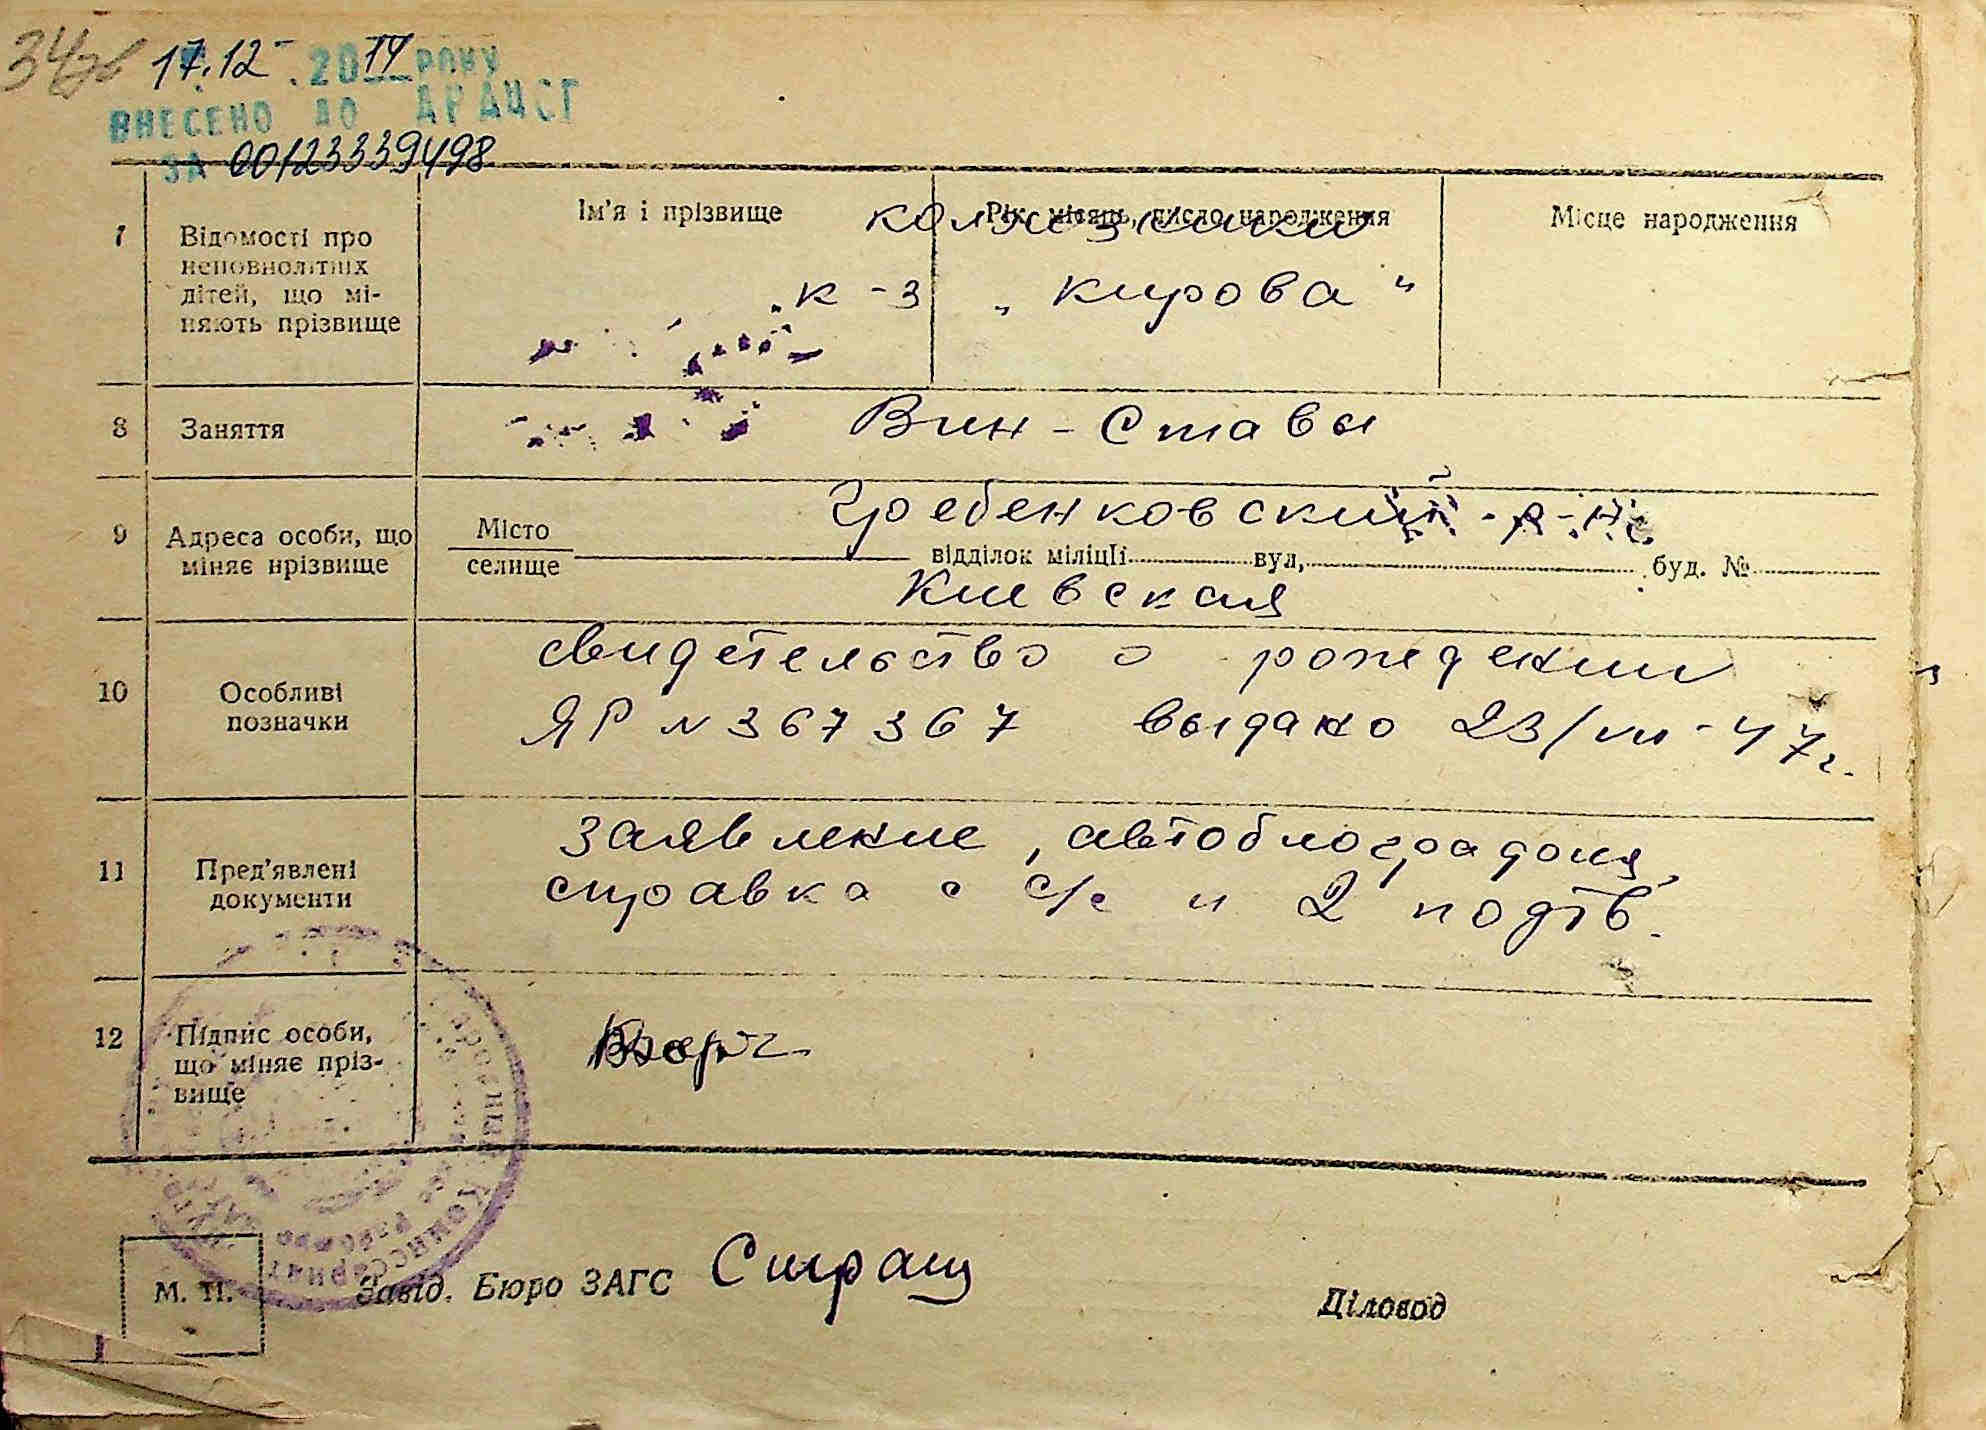 34зв 17.12 .2014 року
ВНЕСЕНО ДО ДРАЦСГ
ЗА 00123339498
7
Відомості про
неповнолітніх
дітей, що мі-
няють прізвище
Ім'я і прізвище
Рік, місяць, число народження
Місце народження
колхозника
к-з „Кирова“
8 Заняття
Вин-Ставы
Гребенковский р-н
9
Адреса особи, що
міняє прізвище
Місто
селище
відділок міліції вул, буд. №
Киевская
10
Особливі
позначки
свидетельство о рождении
ЯР N 367367 выдано 23/VII-47г.
11
Пред'явлені
документи
заявление, автобиография,
справка с с/с и 2 подтв.
12
Підпис особи,
що міняє пріз-
вище
М. П.
Завід. Бюро ЗАГС
Діловод